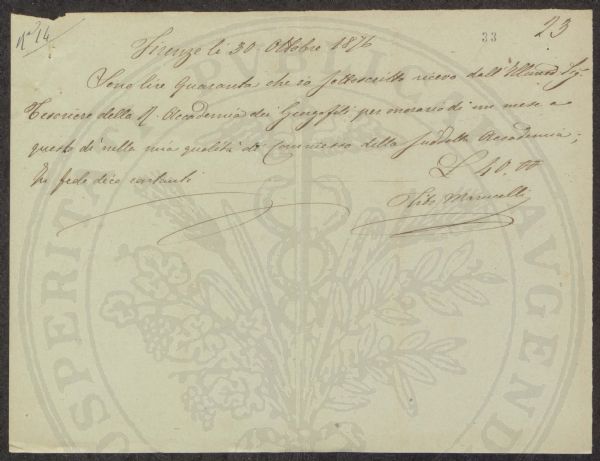 N° 14
33
23
Firenze li 30 Ottobre 1876
Sono lire Quaranta che io sottoscritto ricevo dall'Illmo Sig.
Tesoriere della R. Accademia dei Georgofili per onorario di un mese a
questo dì nella mia qualità di Commesso della suddetta Accademia;
In fede dico contanti
£ 40.00
Minucelli
PROSPERITATI PUBLICAE AUGENDAE